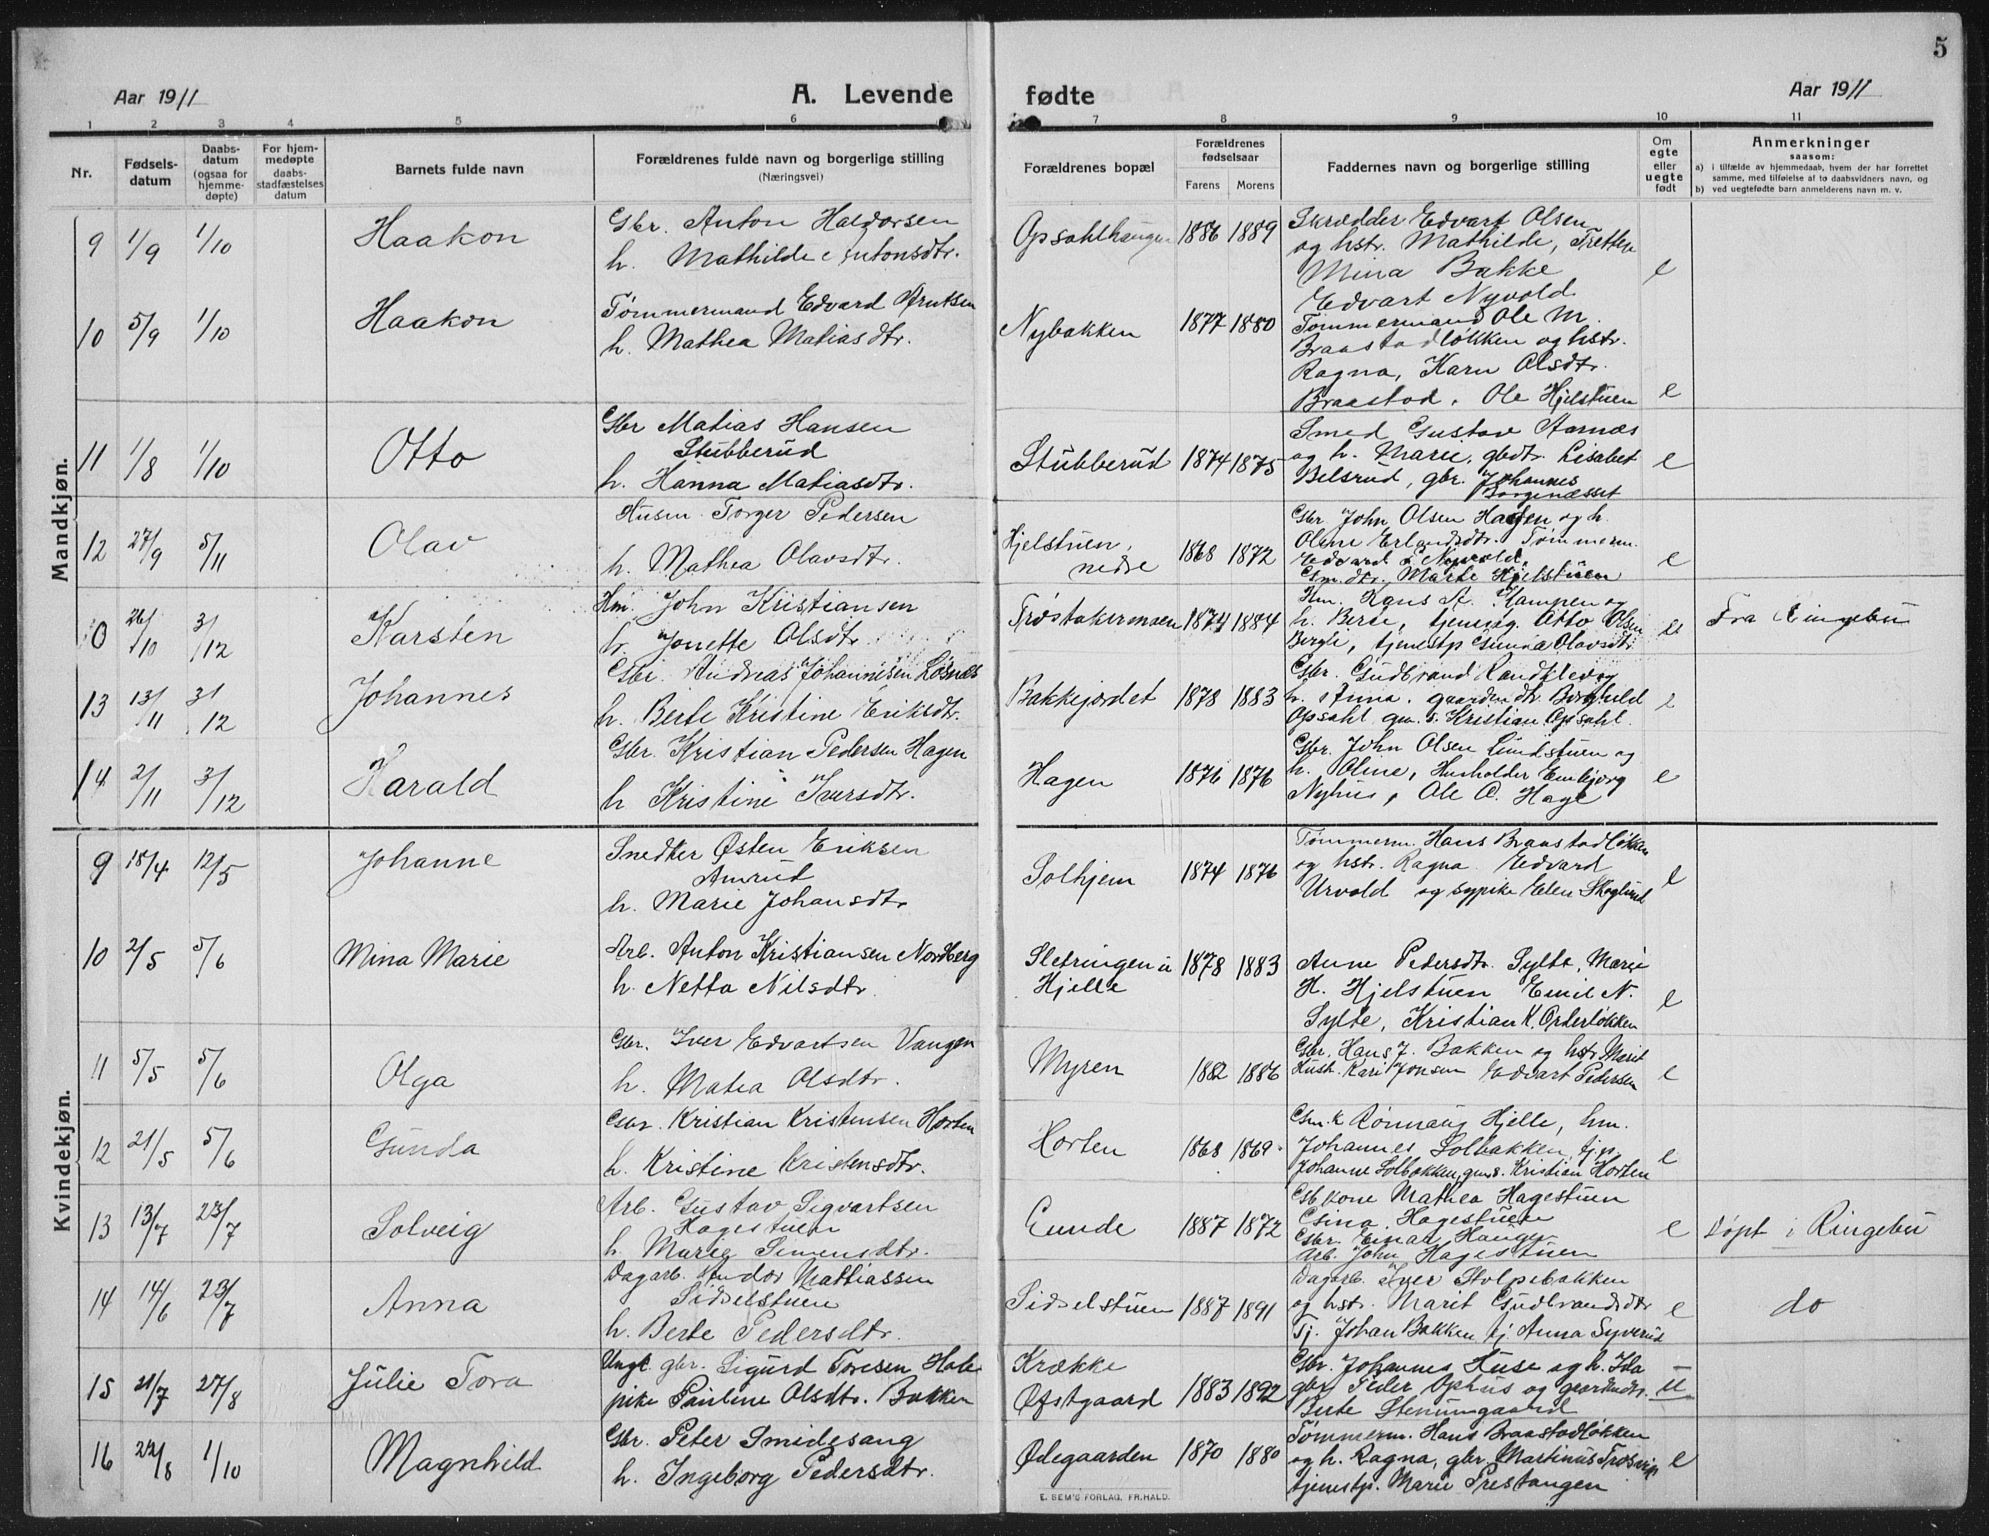 5
Aar 1911
A. Levende
fødte
Aar 1911
1 2 3 4 5 6 7 8 9 10 11
Nr.
Fødsels-
datum
Daabs-
datum
(ogsaa for
hjemme-
døpte)
For hjem-
medøpte
daabs-
stadfæstelses
datum
Barnets fulde navn
Forældrenes fulde navn og borgerlige stilling
(Næringsvei)
Forældrenes bopæl
Forældrenes
fødselsaar
Farens Morens
Faddernes navn og borgerlige stilling
Om
egte
eller
uegte
født
Anmerkninger
saasom:
a) i tilfælde av hjemmedaab, hvem der har forrettet
samme, med tilføielse af to daabsvidners navn, og
b) ved uegtefødte barn anmelderens navn m. v.
Mandkjøn.
9 1/9 1/10 Haakon
Gbr. Anton Haldorsen
h. Mathilde Antonsdtr.
Opsahlhaugen 1886 1889
Skrædder Edvart Olsen
og hstr. Mathilde, Tretten
Mina Bakke
e
10 5/9 1/10 Haakon
Tømmermand Edvard Arntsen
h. Mathea Matiasdtr.
Nybakken 1877 1880
Edvart Nyvold
Tømmermand Ole M.
Braastadløkken og hstr.
Ragna, Karn Olsdtr.
Braastad. Ole Hjelstuen
e
11 1/8 1/10 Otto
Gbr Matias Hansen
Stubberud
h. Hanna Matiasdtr.
Stubberud 1874 1875
Smed Gustav Aarnæs
og h. Marie, gbdt. Lisabet
Belsrud, gbr. Johannes
Borgenæsset
e
12 27/9 5/11 Olav
Husm. Torger Pedersen
h. Mathea Olavsdtr.
Hjelstuen,
nedre
1868 1872
Gbr John Olsen Hagen og h.
Oline Erlandsdtr. Tømmerm.
Edvard Nyvold,
Gm. dtr. Marte Hjelstuen
e
0 26/10 3/12 Karsten
Hm. John Kristiansen
h. Jonette Olsdtr
Frøstakermoen 1874 1884
Hm. Hans A. Kampen og
h. Berte, tjeneg. Otto Olsen
Bergli, tjenestp Gunna Olavsdtr
Fra Ringebu
13 13/11 3/12 Johannes
Gbr. Andreas Johannesen Losnæs
h. Berte Kristine Eriksdtr.
Bakkejordet 1878 1883
Gbr. Gudbrand Randklev og
h. Anna. gaardm dtr. Borghild
Opsahl gm. s. Kristian Opsahl.
e
14 2/11 3/12 Harald
Gbr. Kristian Pedersen Hagen
h Kristine Iversdtr.
Hagen 1876 1876
Gbr. John Olsen Lundstuen og
h. Oline, Husholder Embjørg
Nyhus, Ole O. Hage
e
Kvindekjøn.
9 18/4 12/5 Johanne
Snedker Østen Eriksen
Amrud
h. Marie Johansdtr
Solhjem 1874 1876
Tømmerm. Hans Braastadløkken
og hstr. Ragna Edvard
Urvold og sypike Elen Skoglund
e
10 2/5 5/6 Mina Marie
Arb. Anton Kristiansen Nordberg
h. Netta Nilsdtr
Sletringen u
Hjelle
1878 1883
Anne Pedersdtr. Sylte, Marie
H. Hjelstuen Emil N.
Sylte, Kristian K. Opterløkken
e
11 5/5 5/6 Olga
Gbr. Iver Edvartsen Vangen
h. Matea Olsdtr.
Myren 1882 1886
Gbr. Hans J. Bakken og hstr. Marit
Hust. Kari Jonsen Edvart Pedersen
e
12 21/5 5/6 Gunda
Gbr. Kristian Kristensen Horten
h. Kristine Kristensdtr.
Horten 1868 1869.
Gm. k Rønnaug Hjelle, hm.
Johannes Solbakken, tj.p.
Johanne Solbakken, gm. s. Kristian Horten
e
13 13/7 23/7 Solveig
Arb. Gustav Sigvartsen
Hagestuen
h. Marie Simensdtr.
Eunde 1887 1872
Gb. kone Mathea Hagestuen
Gina Hagestuen
Gbr. Einar Hauge
Arb. John Hagestuen
e
Døpt i Ringebu
14 14/6 23/7 Anna
Dagarb. Andor Mathiassen
Sidselstuen
h. Berte Pedersdtr.
Sidselstuen 1887 1891
Dagarb. Iver Stolpebakken
og hstr. Marit Gudbrandsdtr
Tj. Johan Bakken tj. Anna Syverud
e
do
15 21/7 27/8 Julie Tora
Ungk. gbr. Sigurd Toresen
pike Pauline Olsdtr. Bakken
Krække
Øfstgaard
1883 1892
Gbr. Johannes Huse og h. Ida
gbr Peder Ophus og gaardmdtr.
Berte Stenumgaard
u
16 22/8 1/10 Magnhild
Gbr. Peter Smidesang
h. Ingeborg Pedersdtr.
Ødegaarden 1870 1880
Tømmerm. Hans Braastadløkken
og h. Ragna, gbr. Martinus
tjenestp. Marie Prestangen
e
E. SEM'S FORLAG, FR.HALD.